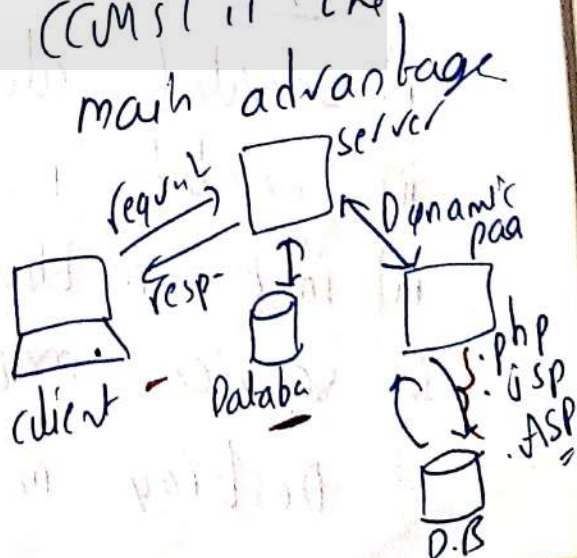 (CCMS) is the
main advantage
server
request
resp-
Dynamic
paa
client
Databa
.php
.jsp
.ASP
D.B